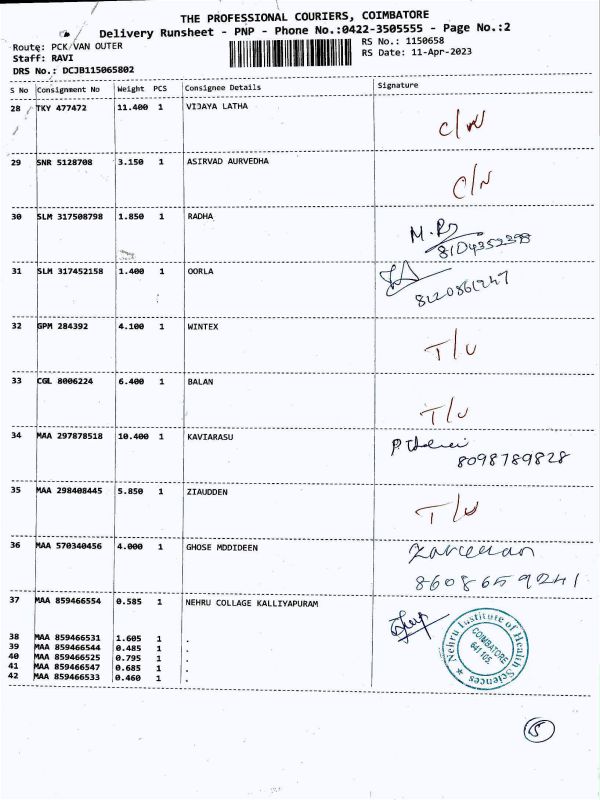 THE PROFESSIONAL COURIERS, COIMBATORE
Delivery Runsheet - PNP - Phone No.:0422-3505555 - Page No.:2
Route: PCK VAN OUTER RS No.: 1150658
Staff: RAVI RS Date: 11-Apr-2023
DRS No.: DCJB115065802
S No Consignment No Weight PCS Consignee Details Signature
28 TKY 477472 11.400 1 VIJAYA LATHA
C/N
29 SNR 5128708 3.150 1 ASIRVAD AURVEDHA
C/N
30 SLM 317508798 1.850 1 RADHA
8104352398
31 SLM 317452158 1.400 1 OORLA
8120861247
32 GPM 284392 4.100 1 WINTEX
T/U
33 CGL 8006224 6.400 1 BALAN
T/U
34 MAA 297878518 10.400 1 KAVIARASU
8098789828
35 MAA 298408445 5.850 1 ZIAUDDEN
T/U
36 MAA 570340456 4.000 1 GHOSE MDDIDEEN
8608659241
37 MAA 859466554 0.585 1 NEHRU COLLAGE KALLIYAPURAM
Nehru Institute of Health Sciences
COIMBATORE
641 105.
38 MAA 859466531 1.605 1 .
39 MAA 859466544 0.485 1 .
40 MAA 859466525 0.795 1 .
41 MAA 859466547 0.685 1 .
42 MAA 859466533 0.460 1 .
5